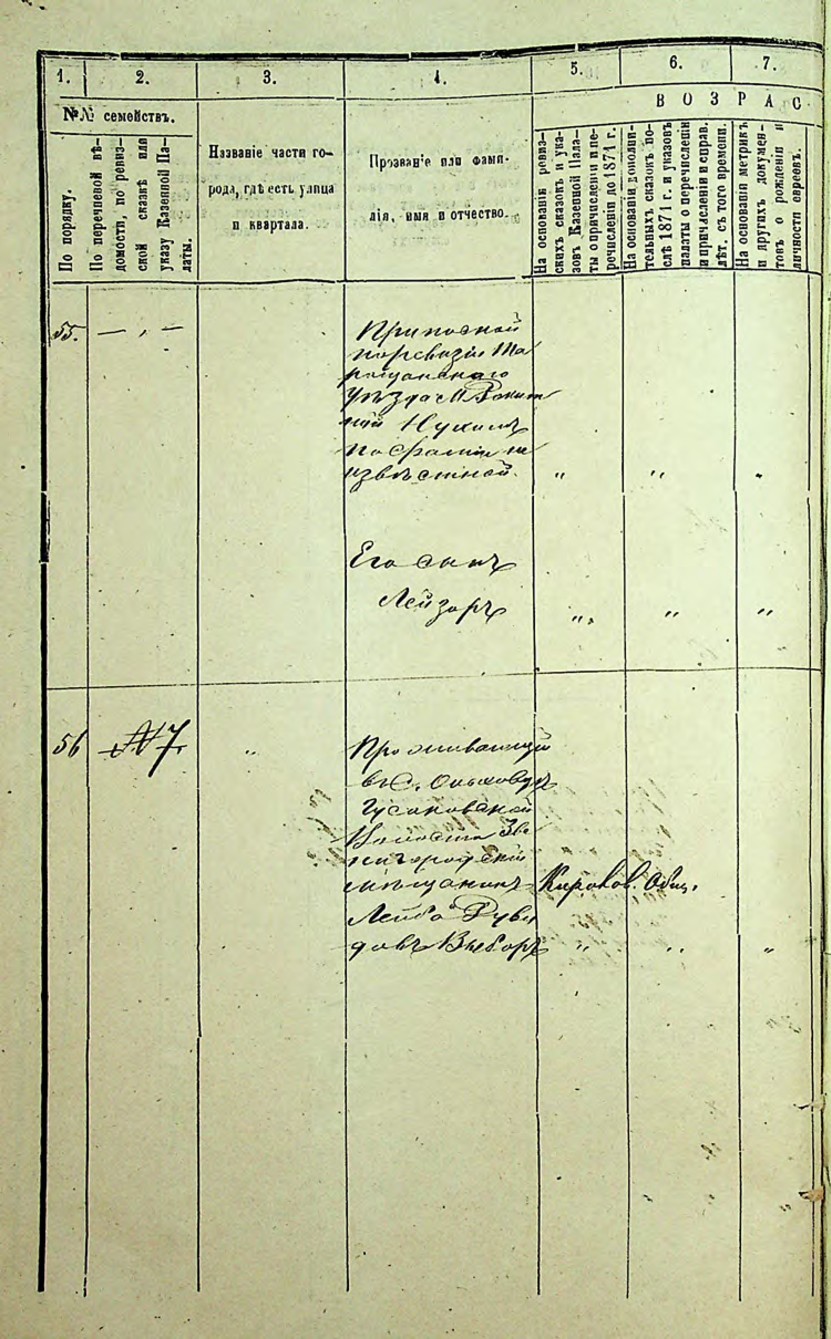 1.
2.
3.
4.
5.
6.
7.
ВОЗРАС
№№ семействъ.
По порядку.
По перечневой вѣ-
домости, по ревиз-
ской сказкѣ или
указу Казенной Па-
латы.
Названіе части го-
рода, гдѣ есть улица
и квартала.
Прозваніе или фами-
лія, имя и отчество.
На основаніи ревиз-
скихъ сказокъ и ука-
зовъ Казенной Пала-
ты о причисленіи и пе-
речисленіи до 1871 г.
На основаніи дополни-
тельныхъ сказокъ по-
слѣ 1871 г. и указовъ
палаты о перечисленіи
и причисленіи и справ.
лѣт. съ того времени.
На основаніи метрикъ
и другихъ докумен-
товъ о рожденіи и
личности евреевъ.
55. — „ —
Приписной
по ревизіи Та
ращанскаго
уѣзда М. Ракит
ной Нухимъ
по фамиліи не
извѣстной. „ „ „
Его сынъ
Лейзоръ „ „ „
56 №7 „ Проживающій
въ С.
Гусаковской
Волости Зве
нигородскій
мѣщанинъ
Лейба Руви
новъ Выборъ „ „ „